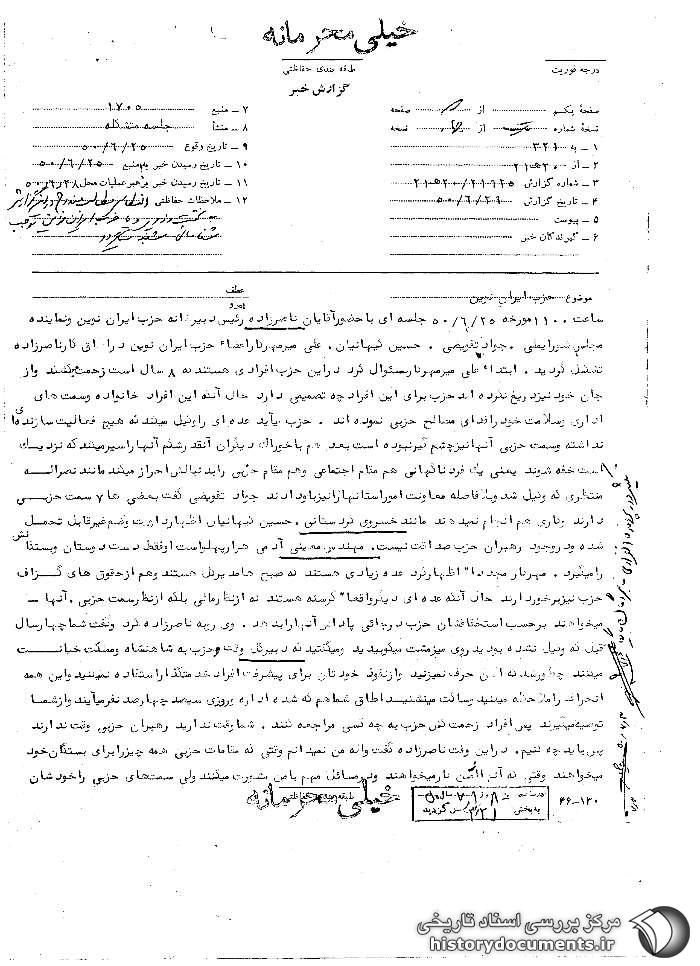 خیلی محرمانه
طبقه بندی حفاظتی
درجه فوریت
گزارش خبر
صفحهٔ یکم از صفحه
نسخهٔ شماره از نسخه
۱ – به ۳۲۱
۲ – از ۲۱ ه ۲۰
۳ – شماره گزارش ۲۱ ه ۲۰/۲۱۹۲۵
۴ – تاریخ گزارش ۵۰/۶/۲۹
۵ – پیوست
۶ – گیرندگان خبر
۷ – منبع ۱۷۰۵
۸ – منشأ جلسه متشکله
۹ – تاریخ وقوع ۵۰/۶/۲۵
۱۰ – تاریخ رسیدن خبر به منبع ۵۰/۶/۲۵
۱۱ – تاریخ رسیدن خبر به رهبر عملیات محل ۵۰/۶/۲۸
۱۲ – ملاحظات حفاظتی
موضوع حزب ایران نوین
عطف
پیرو
ساعت ۱۱۰۰ مورخه ۵۰/۶/۲۵ جلسه ای با حضور آقایان ناصرزاده رئیس دبیرخانه حزب ایران نوین و نماینده
مجلس شورایملی ـ جواد تفویضی ـ حسین کیهانیان ـ علی میرمهرنار اعضاء حزب ایران نوین در اتاق کار ناصرزاده
تشکیل گردید . ابتداء علی میرمهرنار سئوال کرد در این حزب افرادی هستند که ۸ سال است زحمت کشند و از
جان خود نیز دریغ نکرده اند حزب برای این افراد چه تصمیمی دارد حال آنکه این افراد خانواده و سمت های
اداری و سلامت خود را فدای مصالح حزبی نموده اند . حزب میآید عده ای را وکیل میکند که هیچ فعالیت سازنده ای
نداشته و سمت حزبی آنها نیز چشم گیر نبوده است بعد هم با خوراک دیگران آنقدر شکم آنها را سیر میکند که نزدیک
است خفه شوند یعنی یک فرد ناگهانی هم مقام اجتماعی و هم مقام حزبی را بدنبالش احراز میکند مانند نصراله
منتظری که وکیل شد و بلافاصله معاونت امور استانها را نیز باو دادند جواد تفویضی گفت بعضی ها ۷ سمت حزبی
دارند و کاری هم انجام نمیدهند مانند خسروی کردستانی . حسین کیهانیان اظهار داشت وضع غیر قابل تحمل
شده و در وجود رهبران حزب صداقت نیست . مهندس معینی آدمی هزار پهلو است او فقط دست دوستان و بستگانش
را میگیرد . مهرنار مجددا" اظهار کرد عده زیادی هستند که صبح ها مدیر کل هستند و هم از حقوق های گزاف
حزب نیز برخوردارند حال آنکه عده ای دیگر واقعا" گرسنه هستند نه از نظر مالی بلکه از نظر سمت حزبی . آنها ـ
میخواهند بر حسب استحقاقشان حزب در جائی پاداش آنها را بدهد . وی رو به ناصرزاده کرد و گفت شما چهار سال
قبل که وکیل نشده بودید روی میز مشت میکوبیدید و میگفتید که دبیر کل وقت و حزب به شاهنشاه و مملکت خیانت
میکنند چطور شد که این حرف نمیزنید و از نفوذ خودتان برای پیشرفت افراد خدمتگذار استفاده نمیکنید و این همه
انحراف را ملاحظه میکنید و ساکت مینشینید اطاق شما هم که شده اداره و روزی سیصد چهارصد نفر میآیند و از شما
توصیه میگیرند پس افراد زحمت کش حزب به چه کسی مراجعه کنند . شما وقت ندارید رهبران حزبی وقت ندارند
پس باید چه کنیم . در این وقت ناصرزاده گفت والله من نمیدانم وقتی که مقامات حزبی همه چیز را برای بستگان خود
میخواهند وقتی که از من کار میخواهند و در مسائل مهم با من مشورت میکنند ولی سمتهای حزبی را خودشان
خیلی محرمانه
طبقه بندی حفاظتی
۴۶-۱۲۰
مرکز بررسی اسناد تاریخی
historydocuments.ir